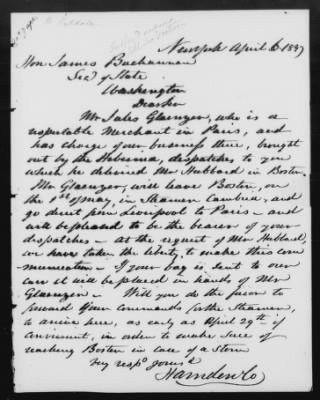 New York April 6 1847
Hon James Buchannan
Secy of State
Washington
Dear Sir
Mr Jules Glaenzer, who is a
respectable Merchant in Paris, and
has charge of our business there, brought
out by the Hibernia, dispatches to you
which he delivered Mr Hubbard in Boston.
Mr Glaenzer, will leave Boston, on
the 1st of May, in Steamer Cambria, and
go direct from Liverpool to Paris - and
will be pleased to be the bearer of your
dispatches - At the request of Mr Hubbard,
we have taken the liberty, to make this com
munication - If your bag is sent to our
care it will be placed in hands of Mr
Glaenzer - Will you do the favor to
forward your commands for the Steamer,
to arrive here, as early as April 29th if
convenient, in order to make sure of
reaching Boston in case of a Storm
Very respy yours
Harnden & Co